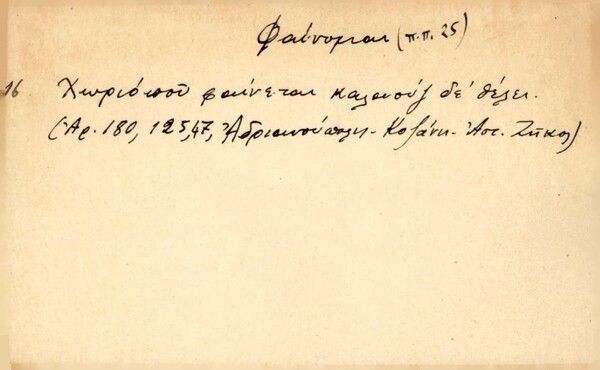 Φαίνομαι (π.π. 25)
16 Χωριό ποῦ φαίνεται καλαούζ δέ θέλει.
(Ἀρ. 180, 125,47, Ἀδριανούπολις - Κοζάνη - Ἀστ. Ζῆκος)